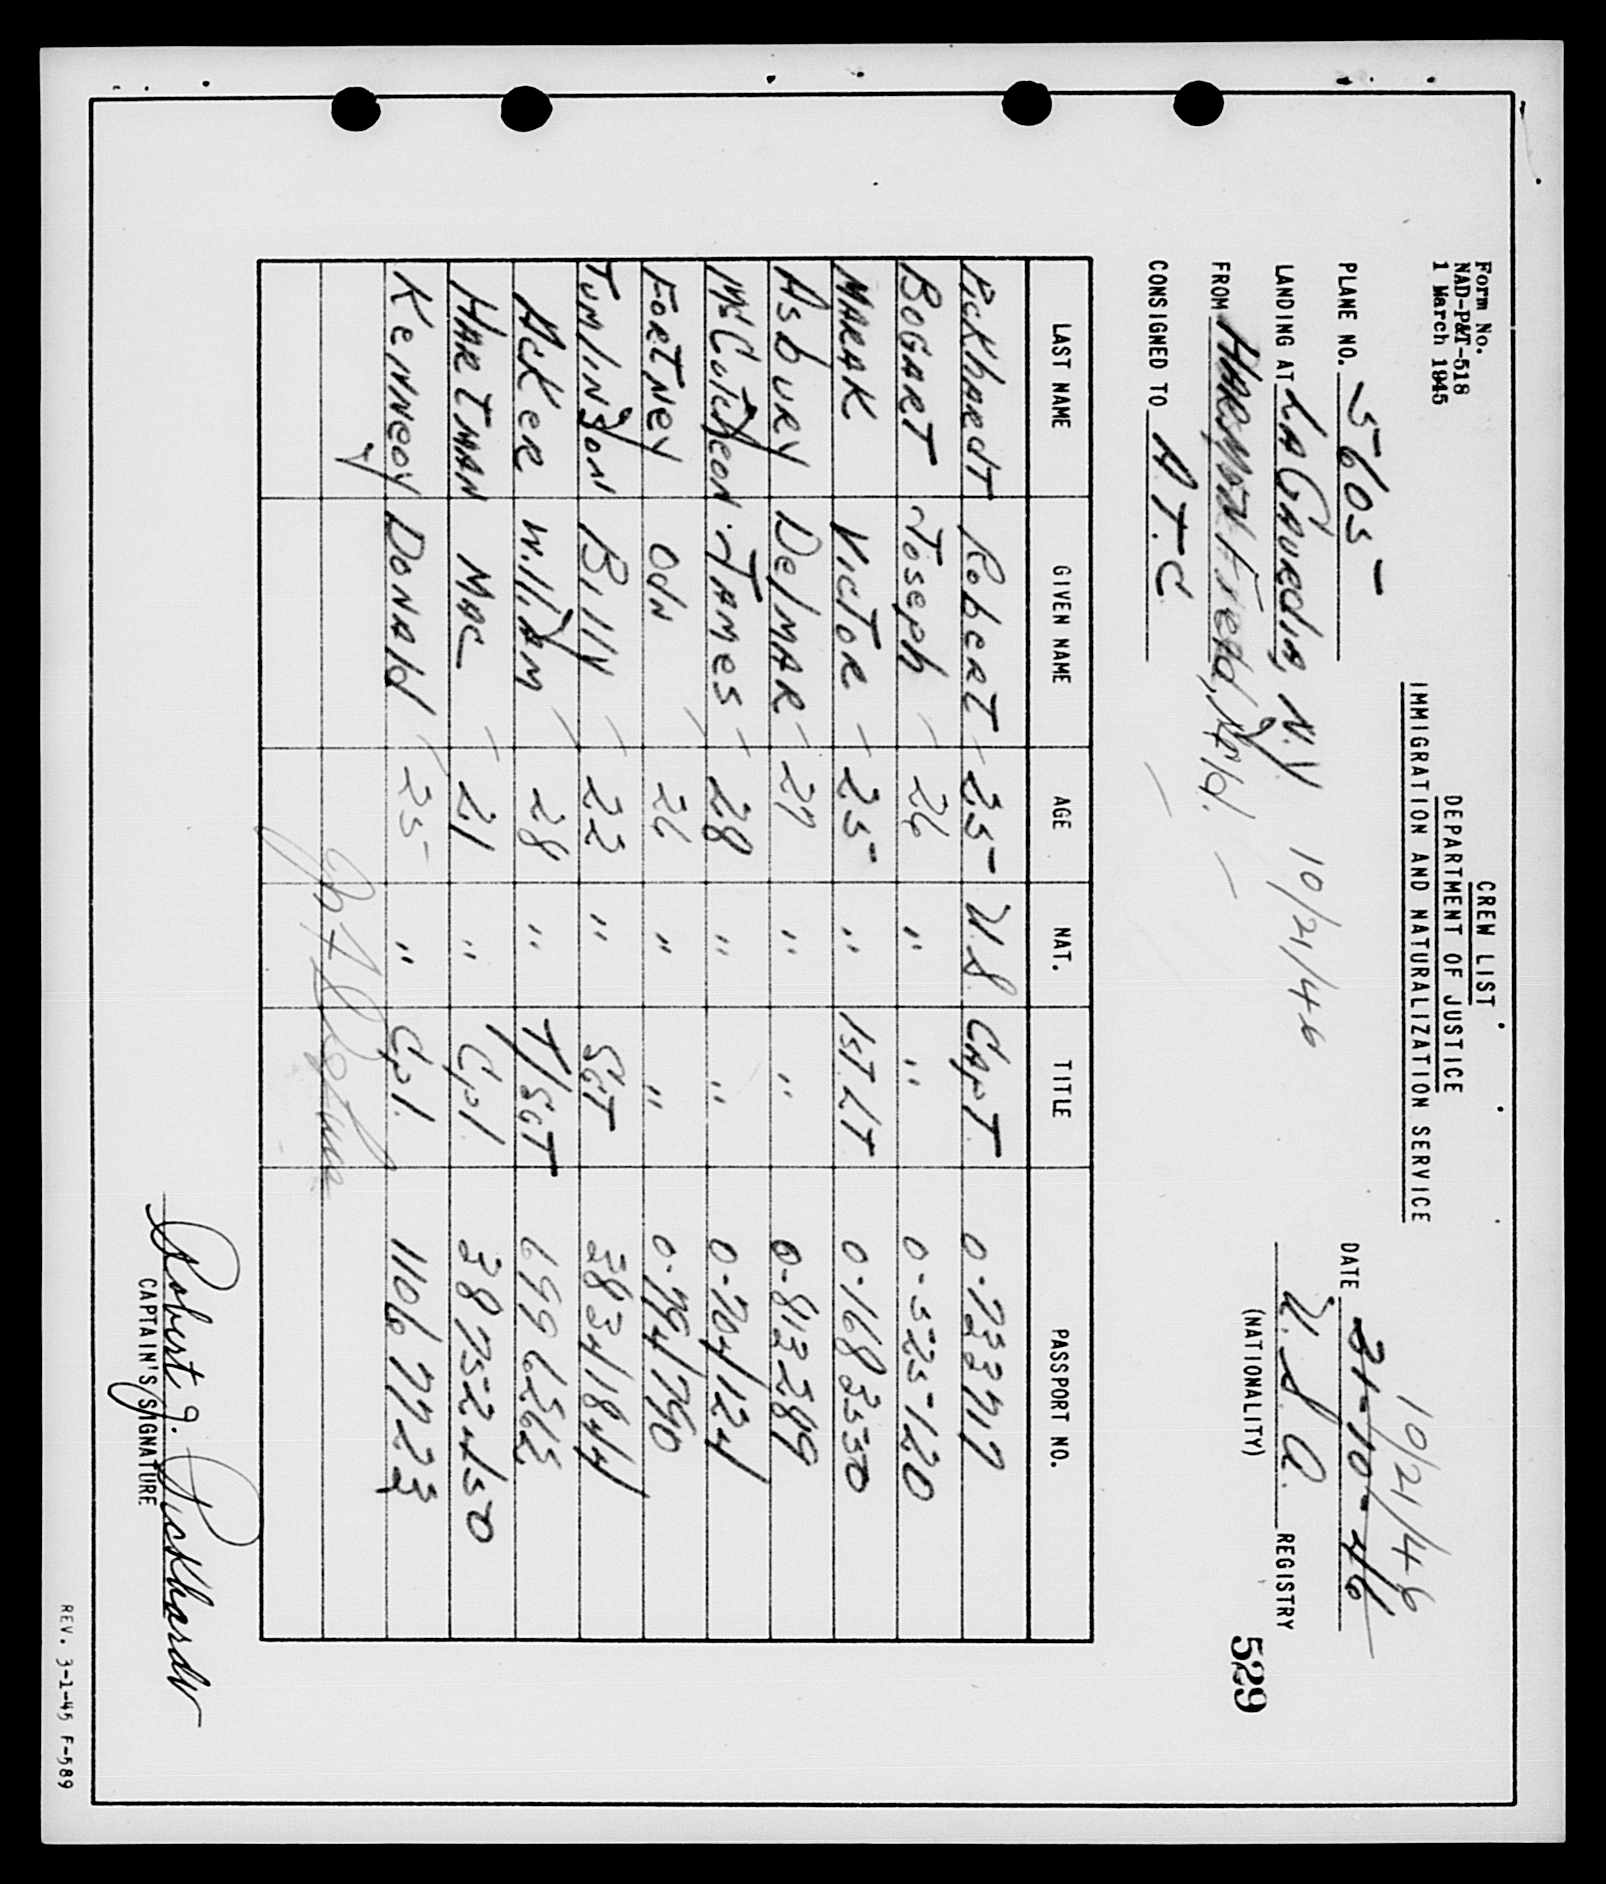 Form No.
NAD-P&T-518
1 March 1945
CREW LIST
DEPARTMENT OF JUSTICE
IMMIGRATION AND NATURALIZATION SERVICE
10/21/46
PLANE NO. 5605
DATE 21-10-46
LANDING AT LA GAURdIA, N.Y 10/21/46
U.S.A. REGISTRY
(NATIONALITY)
FROM HARMON Field, Nfld.
529
CONSIGNED TO A.T.C
LAST NAME GIVEN NAME AGE NAT. TITLE PASSPORT NO.
PickhardT RoberT 25 U.S CApT. 0-733717
BOGART Joseph 26 " " 0-525-120
MARAK VicTOR 25 " 1ST LT 0-1683550
AsbuRy DelMAR 27 " " 0-813289
McCutcheon JAMes 28 " " 0-704124
ForTNey OdN 26 " " 0-794790
TumliNsoN Billy 22 " SGT 38341844
AckeR WilliAm 28 " T/SGT 6996565
HARTMAN MAC 21 " Cpl 38752450
KeNNedy DoNAld 25 " Cpl. 11067723
Robert J. Pickhardt
CAPTAIN'S SIGNATURE
REV. 3-1-45 F-589